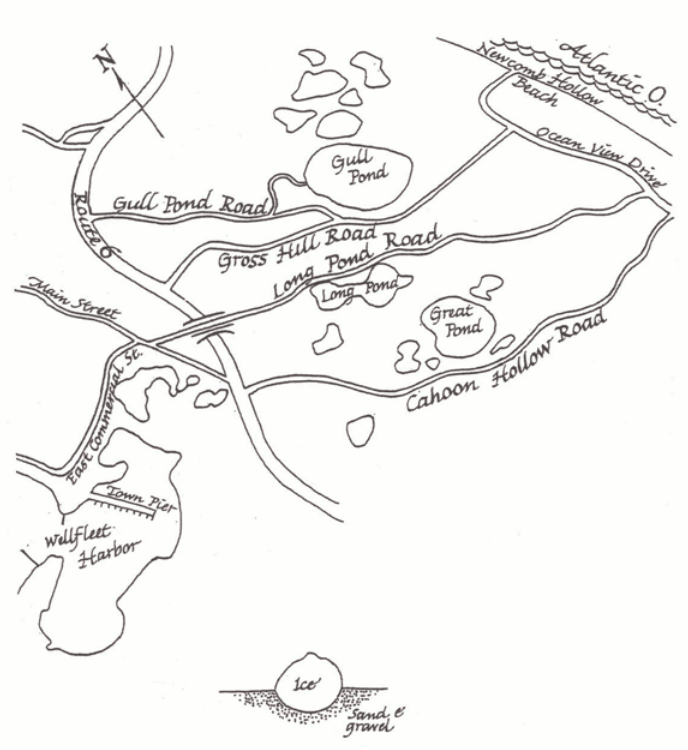 N
Atlantic O.
Newcomb Hollow
Beach
Ocean View Drive
Gull
Pond
Gull Pond Road
Route 6
Gross Hill Road
Long Pond Road
Long Pond
Main Street
Great
Pond
East Commercial St.
Cahoon Hollow Road
Town Pier
Wellfleet
Harbor
Ice
Sand &
gravel